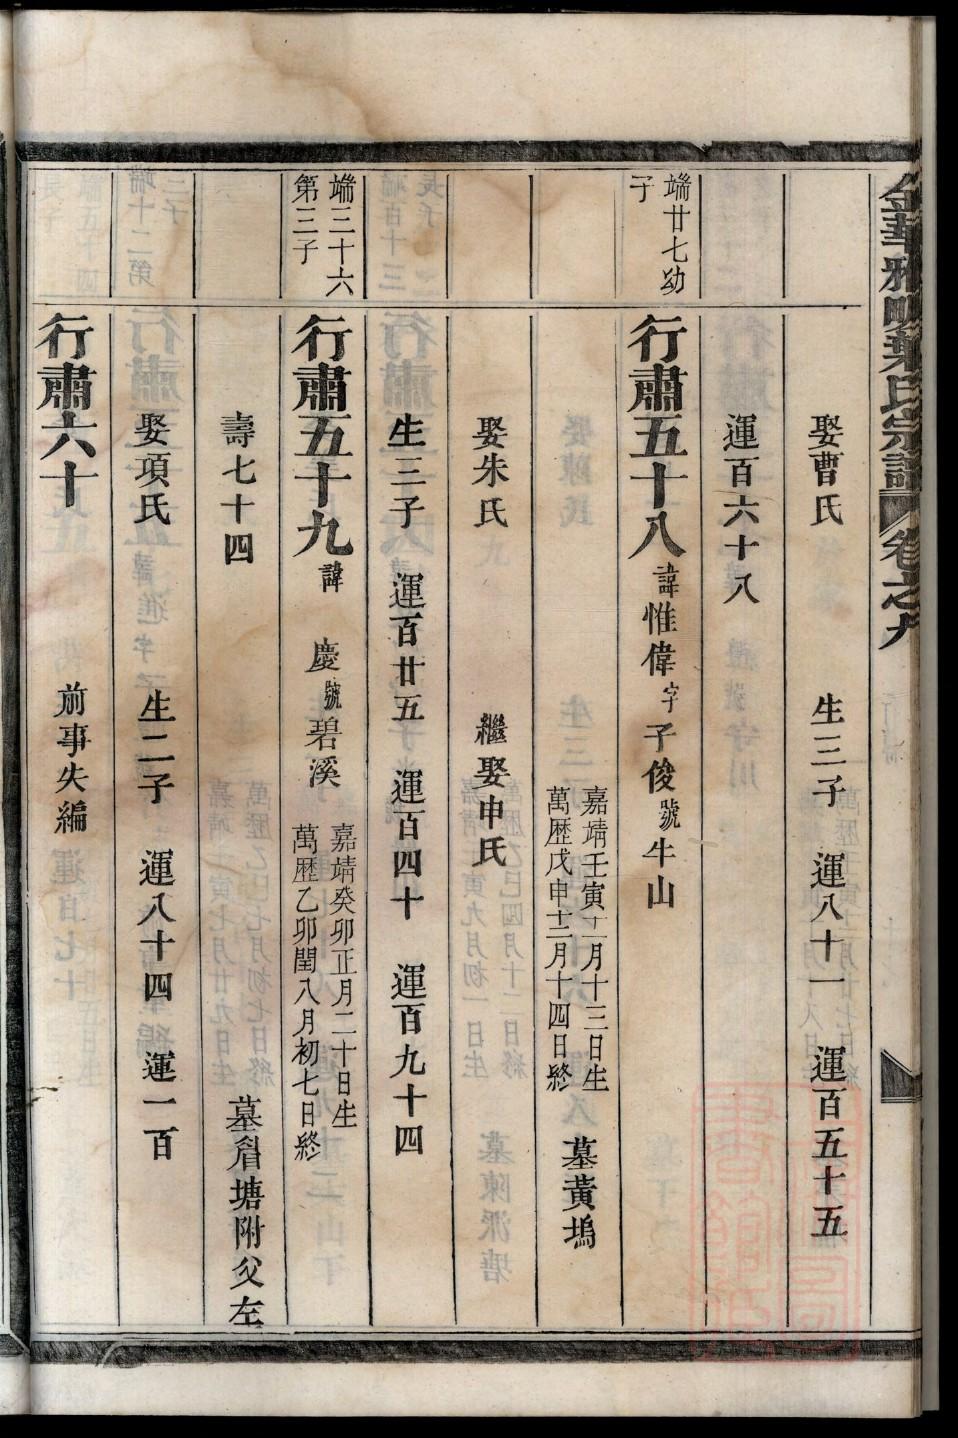 金華雅畈葉氏宗譜 卷之九
娶曹氏 生三子 運八十一 運百五十五
運百六十八
端廿七幼
子
行肅五十八 諱惟偉字子俊號牛山
嘉靖壬寅十二月十三日生
萬歷戊申十二月十四日終
墓黃塢
娶朱氏 繼娶申氏
生三子 運百廿五 運百四十 運百九十四
端三十六
第三子
行肅五十九 諱 慶號碧溪
嘉靖癸卯正月二十日生
萬歷乙卯閏八月初七日終
壽七十四 墓眉塘附父左
娶項氏 生二子 運八十四 運一百
行肅六十 前事失編